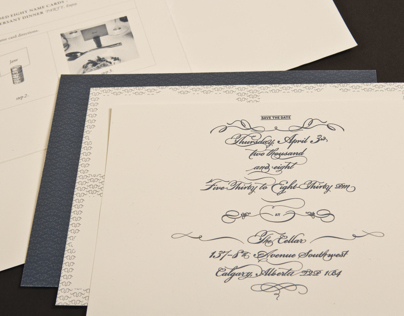 NAME CARDS
DINNER
step 2
SAVE THE DATE
Thursday April 3rd,
two thousand
and eight
Five-Thirty to Eight-Thirty pm
AT
The Cellar
137-8th Avenue Southwest
Calgary, Alberta T2P 1B4